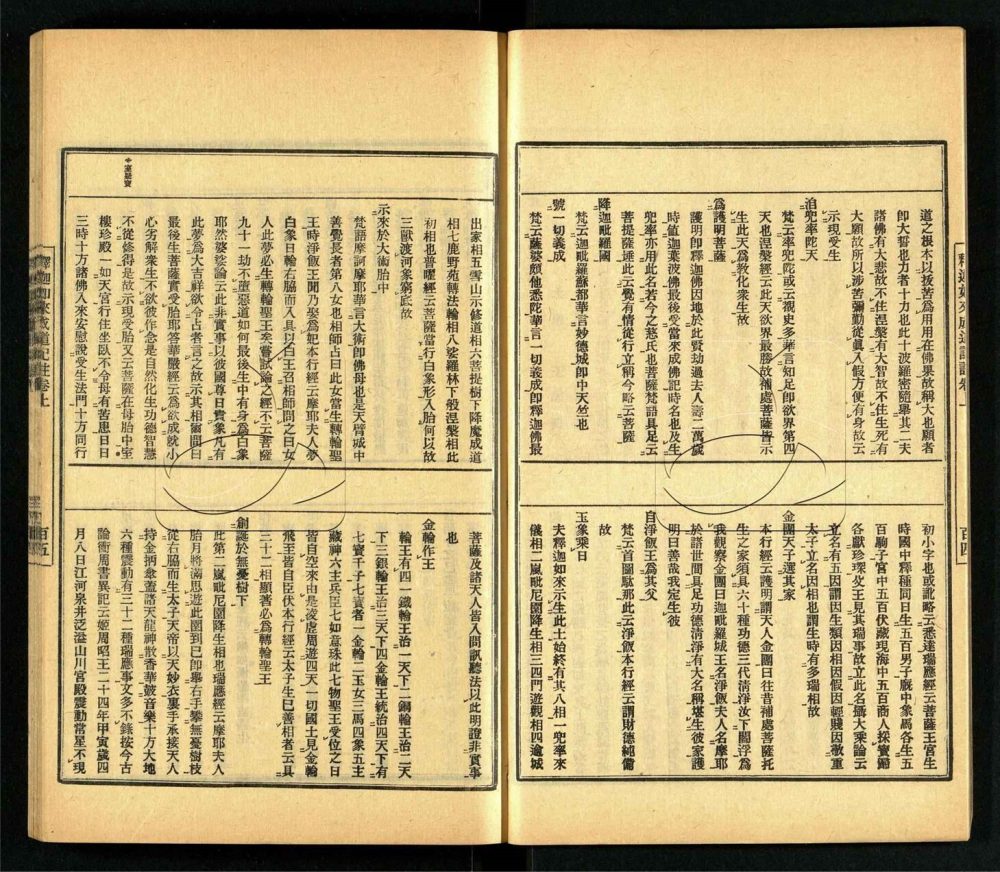 道之根本以拔苦為用用在佛果故稱大也願者
卽大誓也力者十力也此十波羅密隨舉其二夫
諸佛有大悲故不住涅槃有大智故不住生死有
大願故所以涉苦彌勤從眞入假方便有身故云
示現受生
洎兜率陀天
梵云率兜陀或云覩史多華言知足卽欲界第四
天也涅槃經云此天欲界最勝故補處菩薩皆示
生此天為教化衆生故
為護明菩薩
護明卽釋迦佛因地於此賢劫過去人壽二萬歲
時値迦葉波佛最後受當來成佛記時名也及生
兜率亦用此名若今之慈氏也菩薩梵語具足云
菩提薩埵此云覺有情從行立稱今略云菩薩
降迦毗羅國
梵云迦毗羅蘇都華言妙德城卽中天竺也
號一切義成
梵云薩婆頗他悉陀華言一切義成卽釋迦佛最
初小字也或訛略云悉達瑞應經云菩薩王宮生
時國中釋種同日生五百男子廐中象馬各生五
百駒子宮中五百伏藏現海中五百商人採寶歸
各獻珍琛父王見其瑞事故立此名攝大乘論云
立名有五因謂因生類因相因假因輕賤因敬重
太子立名因相也謂生時有多瑞相故
金團天子選其家
本行經云護明謂天人金團曰往昔補處菩薩托
生之家須具六十種功德三代清淨汝下閻浮為
我觀察金團曰迦毗羅城王名淨飯夫人名摩耶
於諸世間具足功德清淨有大名稱堪生彼家護
明曰善哉我定生彼
自淨飯王為其父
梵云首圖馱那此云淨飯本行經云謂財德純備
故
玉象乘日
夫釋迦如來示生此土始終有其八相一兜率來
儀相二嵐毗尼園降生相三四門遊觀相四逾城
出家相五雪山示修道相六菩提樹下降魔成道
相七鹿野苑轉法輪相八娑羅林下般涅槃相此
初相也普曜經云菩薩當行白象形入胎何以故
三獸渡河象窮底故
示來於大術胎中
梵語摩訶摩耶華言大術卽佛母也是天臂城中
善覺長者第八女也相師占曰此女當生轉輪聖
王時淨飯王聞乃娶為妃本行經云摩耶夫人夢
白象日輪右脇而入具以白王召相師問之曰女
人此夢必生轉輪聖王矣嘗試論之經不云菩薩
九十一劫不墮惡道如何最後生中有身為白象
耶然婆娑論云此非實事以彼國尊日貴象凡有
此夢為大吉祥欲令占者言之故示其相爾問曰
最後生菩薩實受胎耶答華嚴經云為欲成就小
心劣解衆生不欲彼作念是自然化生功德智慧
不從修得是故示現受胎又云菩薩在母胎中室
樓珍殿一如天宮行住坐臥不令母有苦患日日
三時十方諸佛入來安慰說受生法門十方同行
菩薩及諸天人皆入問訊聽法以此明證非實事
也
金輪作王
輪王有四一鐵輪王治一天下二銅輪王治二天
下三銀輪王治三天下四金輪王統治四天下有
七寶千子七寶者一金輪二玉女三馬四象五主
藏神六主兵臣七如意珠此七物聖王受位之日
皆自空來由是凌虛周遊四天一切國土見金輪
飛至皆自臣伏本行經云太子生已善相者云具
三十二相顯著必為轉輪聖王
創誕於無憂樹下
此第二嵐毗尼園降生相也瑞應經云摩耶夫人
胎月將滿思遊此園到已卽舉右手攀無憂樹枝
從右脇而生太子天帝以天妙衣裹手承接天人
持金抦傘蓋諸天龍神散香華皷音樂十方大地
六種震動有三十二種瑞應事文多不錄按今古
論衡周書異記云姬周昭王二十四年甲寅歲四
月八日江河泉井泛溢山川宮殿震動常星不現
釋迦如來成道記註卷上
百五
百四